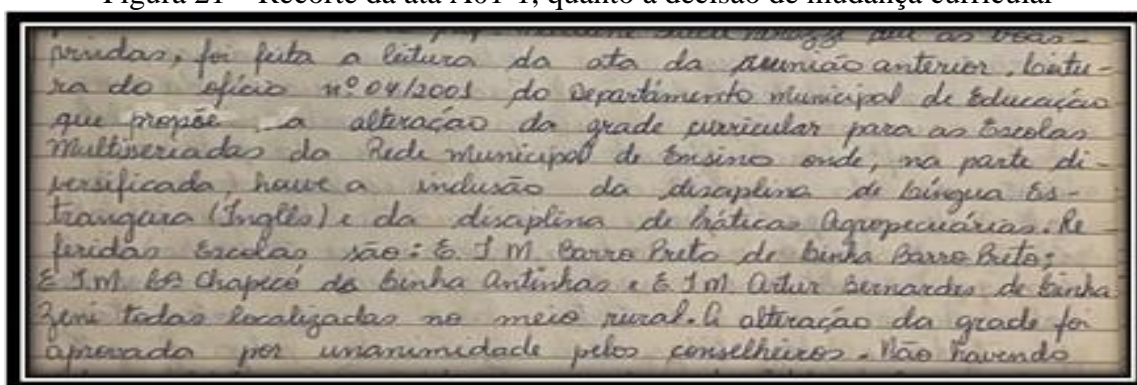 Figura 21 – Recorte da ata A01-1, quanto à decisão de mudança curricular
que as boas-
vindas, foi feita a leitura da ata da reunião anterior, leitu-
ra do ofício nº 04/2001 do Departamento Municipal de Educação
que propõe a alteração da grade curricular para as Escolas
Multisseriadas da Rede Municipal de Ensino onde, na parte di-
versificada, houve a inclusão da disciplina de Língua Es-
trangeira (Inglês) e da disciplina de Práticas Agropecuárias. Re
feridas Escolas são: E I M Barro Preto de Linha Barro Preto;
E I M Chapecó de Linha Antinhas e E I M Artur Bernardes de Linha
Zeni todas localizadas no meio rural. A alteração da grade foi
aprovada por unanimidade pelos conselheiros. Não havendo